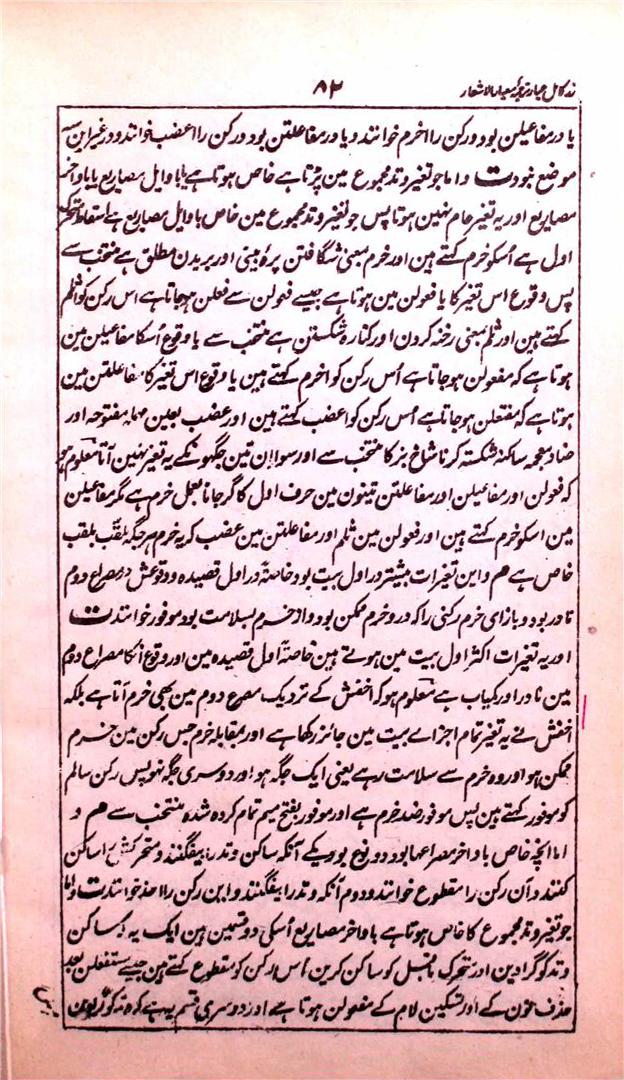 زر کامل عیار ترجمۂ معیار الاشعار ۸۲
یا در مفاعیلن بود و رکن را اخرم خوانند و یا در مفاعلتن بود و رکن را اعضب خوانند و در غیر این سه
موضع نبودت واما جو تغیر وتد مجموع مین پڑتا ہے خاص ہوتا ہے یا باوایل مصاریع یا باواخر
مصاریع اور یہ تغیر عام نہین ہوتا پس جو تغیر وتد مجموع مین خاص باوایل مصاریع ہے اسقاط متحرک
اول ہے اُسکو خرم کہتے ہین اور خرم بمعنی شگافتن پرۂ بینی اور بریدن مطلق ہے منتخب سے
پس وقوع اس تغیر کا یا فعولن مین ہوتا ہے جیسے فعولن سے فعلن ہو جاتا ہے اس رکن کو اثلم
کہتے ہین اور ثلم بمعنی رخنہ کردن اور کنارہ شکستن ہے منتخب سے یا وقوع اُسکا مفاعیلن مین
ہوتا ہے کہ مفعولن ہو جاتا ہے اُس رکن کو اخرم کہتے ہین یا وقوع اس تغیر کا مفاعلتن مین
ہوتا ہے کہ مفتعلن ہو جاتا ہے اُس رکن کو اعضب کہتے ہین اور عضب بعین مہملہ مفتوحہ اور
ضاد معجمہ ساکنہ شکستہ کرنا شاخ بز کا منتخب سے اور سوا اِن تین جگہونکے یہ تغیر نہین آتا معلوم ہو
کہ فعولن اور مفاعیلن اور مفاعلتن تینون مین حرف اول کا گر جانا بعمل خرم ہے مگر مفاعیلن
مین اسکو خرم کہتے ہین اور فعولن مین ثلم اور مفاعلتن مین عضب کہ یہ خرم ہر جگہ ملقّب بلقب
خاص ہے هم واین تغیرات بیشتر در اول بیت بود خاصۃً در اول قصیدہ و وقوعش در مصراع دوم
نادر بود و بازای خرم رکنی را کہ درو خرم ممکن بود و از خرم بسلامت بود موفور خوانند ت
اور یہ تغیرات اکثر اول بیت مین ہوتے ہین خاصۃً اول قصیدہ مین اور وقوع اُنکا مصراع دوم
مین نادر اور کمیاب ہے معلوم ہو کہ اخفش کے نزدیک مصرع دوم مین بھی خرم آتا ہے بلکہ
اخفش نے یہ تغیر تمام اجزاے بیت مین جائز رکھا ہے اور بمقابلہ خرم جس رکن مین خرم
ممکن ہو اور وہ خرم سے سلامت رہے یعنی ایک جگہ ہو اور دوسری جگہ نہو پس رکن سالم
کو موفور کہتے ہین پس موفور ضد خرم ہے اور موفور بفتح میم تمام کردہ شدہ منتخب سے هم و
اما انچہ خاص باواخر مصراعہا بود دو نوع بود یکے آنکہ ساکن وتد را بیفگنند و متحرکش را ساکن
کنند و آن رکن را مقطوع خوانند و دوم آنکہ وتد را بیفگنند و این رکن را احذ خوانند ت واما
جو تغیر وتد مجموع کا خاص ہوتا ہے باواخر مصاریع اُسکی دو قسمین ہین ایک یہ کہ ساکن
وتد کو گرا دین اور متحرک ماقبل کو ساکن کرین اُس رکن کو مقطوع کہتے ہین جیسے مستفعلن بعد
حذف نون کے اور تسکین لام کے مفعولن ہوتا ہے اور دوسری قسم یہ ہے کہ وتد کو گرا دین